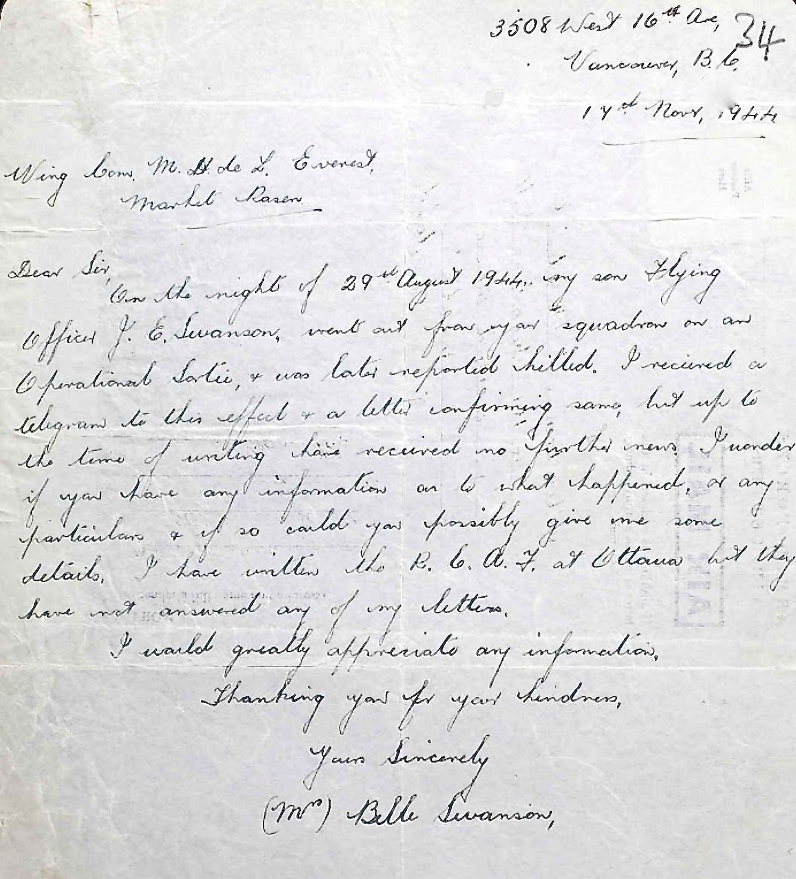 3508 West 16th Ave,
34
Vancouver, B.C.
17th Novr, 1944
Wing Com. M. H. de L. Everest,
Market Rasen
Dear Sir,
On the night of 29th August 1944. my son Flying
Officer J. E. Swanson, went out from your squadron on an
Operational Sortie, & was later reported killed. I recieved a
telegram to this effect & a letter confirming same, but up to
the time of writing have received no further news. I wonder
if you have any information as to what happened, or any
particulars & if so could you possibly give me some
details. I have written the R. C. A. F. at Ottawa but they
have not answered any of my letters.
I would greatly appreciate any information,
Thanking you for your kindness,
Yours Sincerely
(Mrs) Belle Swanson,